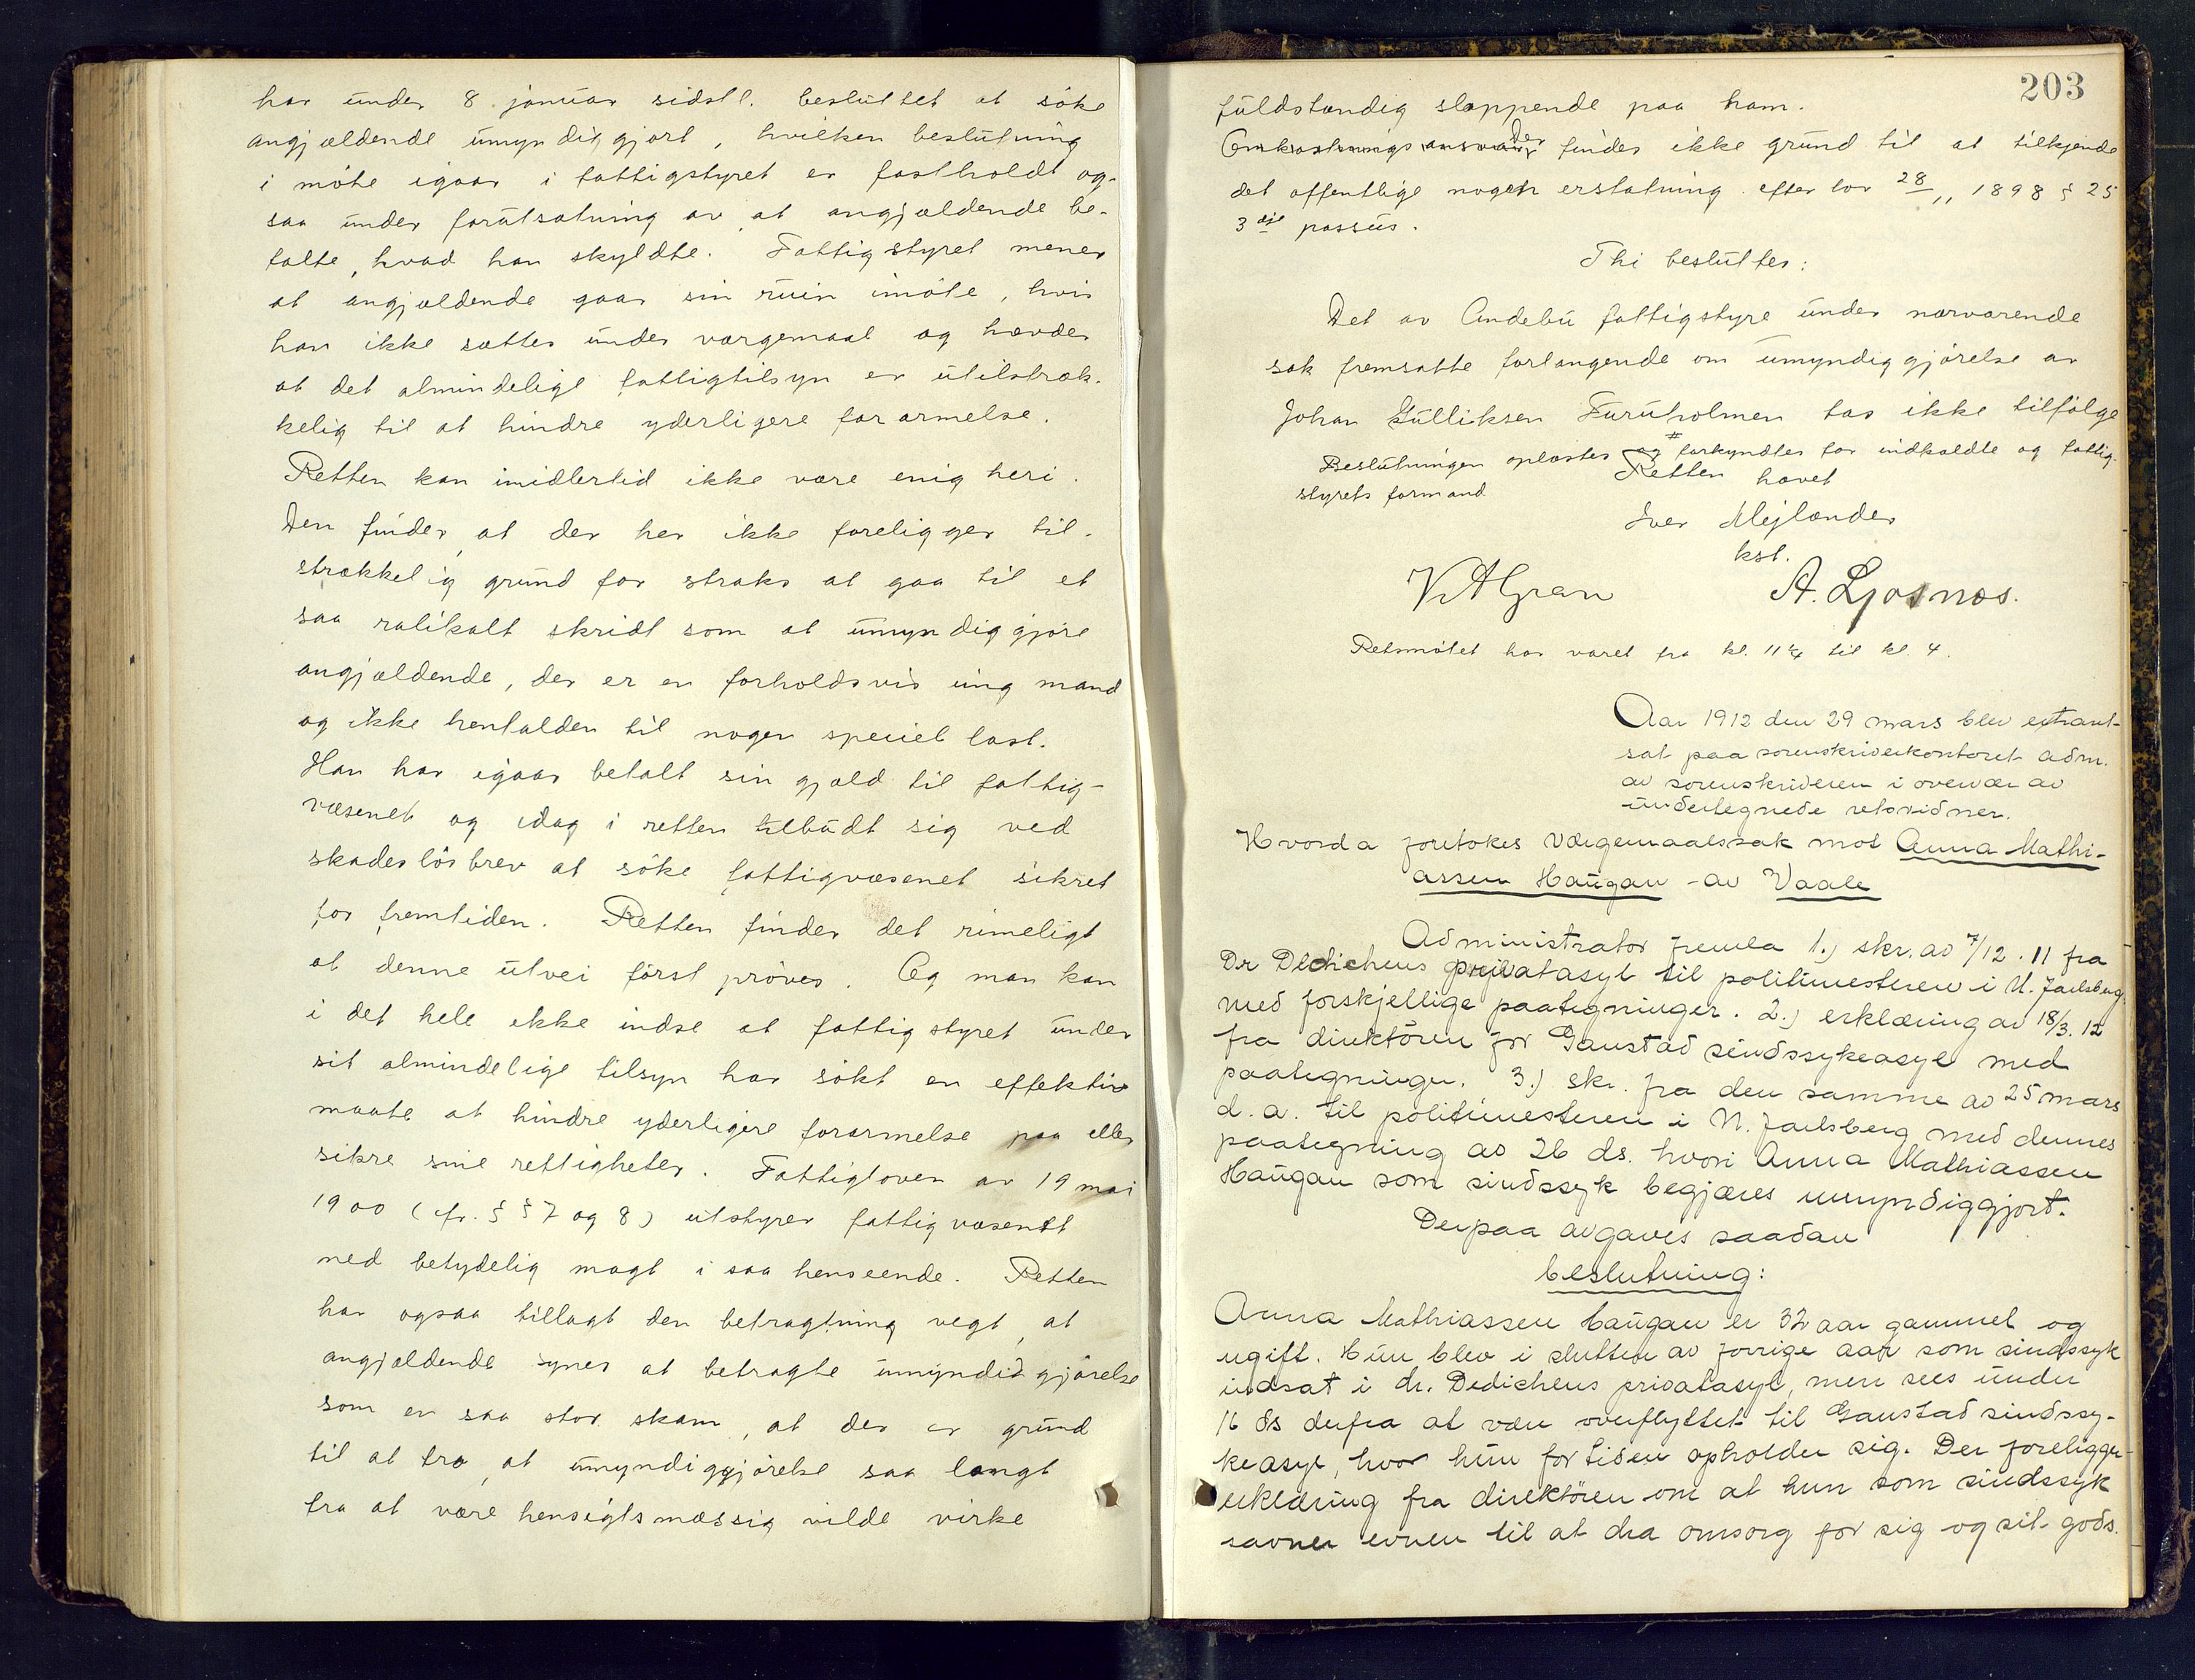 har under 8 januar sidstl. besluttet at söke
angjældende umyndiggjort, hvilken beslutning
i möte igaar i fattigstyret er fastholdt og-
saa under forutsætning av at angjældende be-
talte, hvad han skyldte. Fattigstyret mener
at angjældende gaar sin ruin imöte, hvis
han ikke sættes under værgemaal og hævder
at det almindelige fattigtilsyn er utilstræk-
kelig til at hindre yderligere forarmelse.
Retten kan imidlertid ikke være enig heri.
Den finder, at der her ikke foreligger til-
strækkelig grund for straks at gaa til et
saa ralikalt skridt som at umyndiggjöre
angjældende, der er en forholdsvis ung mand
og ikke henfalden til nogen speciel last.
Han har igaar betalt sin gjæld til fattig-
væsenet og idag i retten tilbudt sig ved
skadeslösbrev at söke fattigvæsenet sikret
for fremtiden. Retten finder det rimeligt
at denne utvei först pröves. Og man kan
i det hele ikke indse at fattigstyret under
sit almindelige tilsyn har sökt en effektiv
maate at hindre yderligere forarmelse paa eller
sikre sine rettigheter. Fattigloven av 19 mai
1900 (cfr. § § 7 og 8) utstyrer fattigvæsenet
med betydelig magt i saa henseende. Retten
har ogsaa tillagt den betragtning vegt, at
angjældende synes at betragte umyndiggjörelse
som en saa stor skam, at der er grund
til at tro, at umyndiggjörelse saa langt
fra at være hensigtsmæssig vilde virke
203
fuldstændig slappende paa ham.
Omkostningsansvar Der findes ikke grund til at tilkjende
det offentlige nogen erstatning efter lov 28/11 1898 § 25
3 dje passus.
Thi besluttes:
Det av Andebu fattigstyre under nærværende
sak fremsatte forlangende om umyndiggjörelse av
Johan Gulliksen Furuholmen tas ikke tilfölge
Beslutningen oplæstes og forkyndtes for indkaldte og fattig-
styrets formand
Retten hævet
Iver Mejlænder
kst.
V. A Gran A. Ljosnæs.
Retsmötet har varet fra kl. 11 ¼ til kl. 4.
Aar 1912 den 29 mars blev extraret
sat paa sorenskriverkontoret adm.
av sorenskriveren i overvær av
undertegnede retsvidner.
Hvorda foretokes værgemaalssak mot Anna Mathi-
assen Haugan - av Vaale
Administrator fremla 1.) skr. av 7/12. 11 fra
Dr Dedichens privatasyl til politimesteren i N. Jarlsberg
med forskjellige paategninger. 2.) erklæring av 18/3. 12
fra direktören for Gaustad sindssykeasyl med
paategninger. 3.) skr. fra den samme av 25 mars
d. a. til politimesteren i N. Jarlsberg med dennes
paategning av 26 ds. hvori Anna Mathiassen
Haugan som sindssyk begjæres umyndiggjort.
Derpaa avgaves saadan
beslutning:
Anna Mathiassen Haugan er 32 aar gammel og
ugift. Hun blev i slutten av forrige aar som sindssyk
indsat i dr. Dedichens privatasyl, men sees under
16 ds derfra at være overflyttet til Gaustad sindssy-
keasyl, hvor hun for tiden opholder sig. Der foreligger
erklæring fra direktören om at hun som sindssyk
savner evnen til at dra omsorg for sig og sit gods.